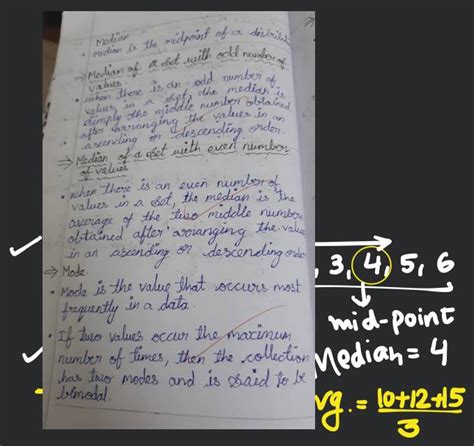 Median
• Median is the midpoint of a distribut
→ Median of a set with odd number of
values
• when there is an odd number of
values in a set, the median is
simply the middle number obtained
after arranging the values in an
ascending or descending order.
→ Median of a set with even number
of values
• when there is an even number of
values in a set, the median is the
average of the two middle numbers
obtained after arranging the value
in an ascending or descending order
→ Mode
• Mode is the value that occurs most
frequently in a data.
• If two values occur the maximum
number of times, then the collection
has two modes and is said to be
bimodal.
, 3, 4, 5, 6
mid-point
Median = 4
vg. = 10+12+15
3